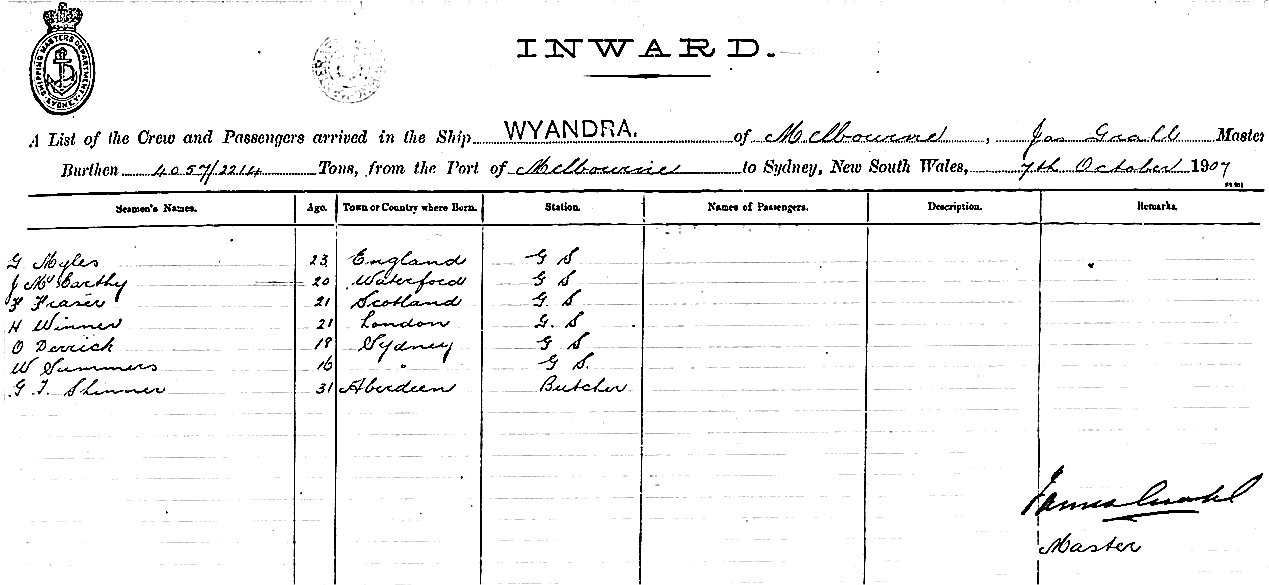 SHIPPING MASTERS DEPARTMENT SYDNEY
INWARD.
A List of the Crew and Passengers arrived in the Ship WYANDRA. of Melbourne, Jas Master
Burthen 4057/2214 Tons, from the Port of Melbourne to Sydney, New South Wales, 7th October 1907
Seamen's Names. Age. Town or Country where Born. Station. Names of Passengers. Description. Remarks.
G Myles 23 England G S
J McCarthy 20 Waterford G S
F Fraser 21 Scotland G. S
H Winner 21 London G. S
O Derrick 19 Sydney G S
W Summers 16 " G S.
G. T. Skinner 31 Aberdeen Butcher
James
Master